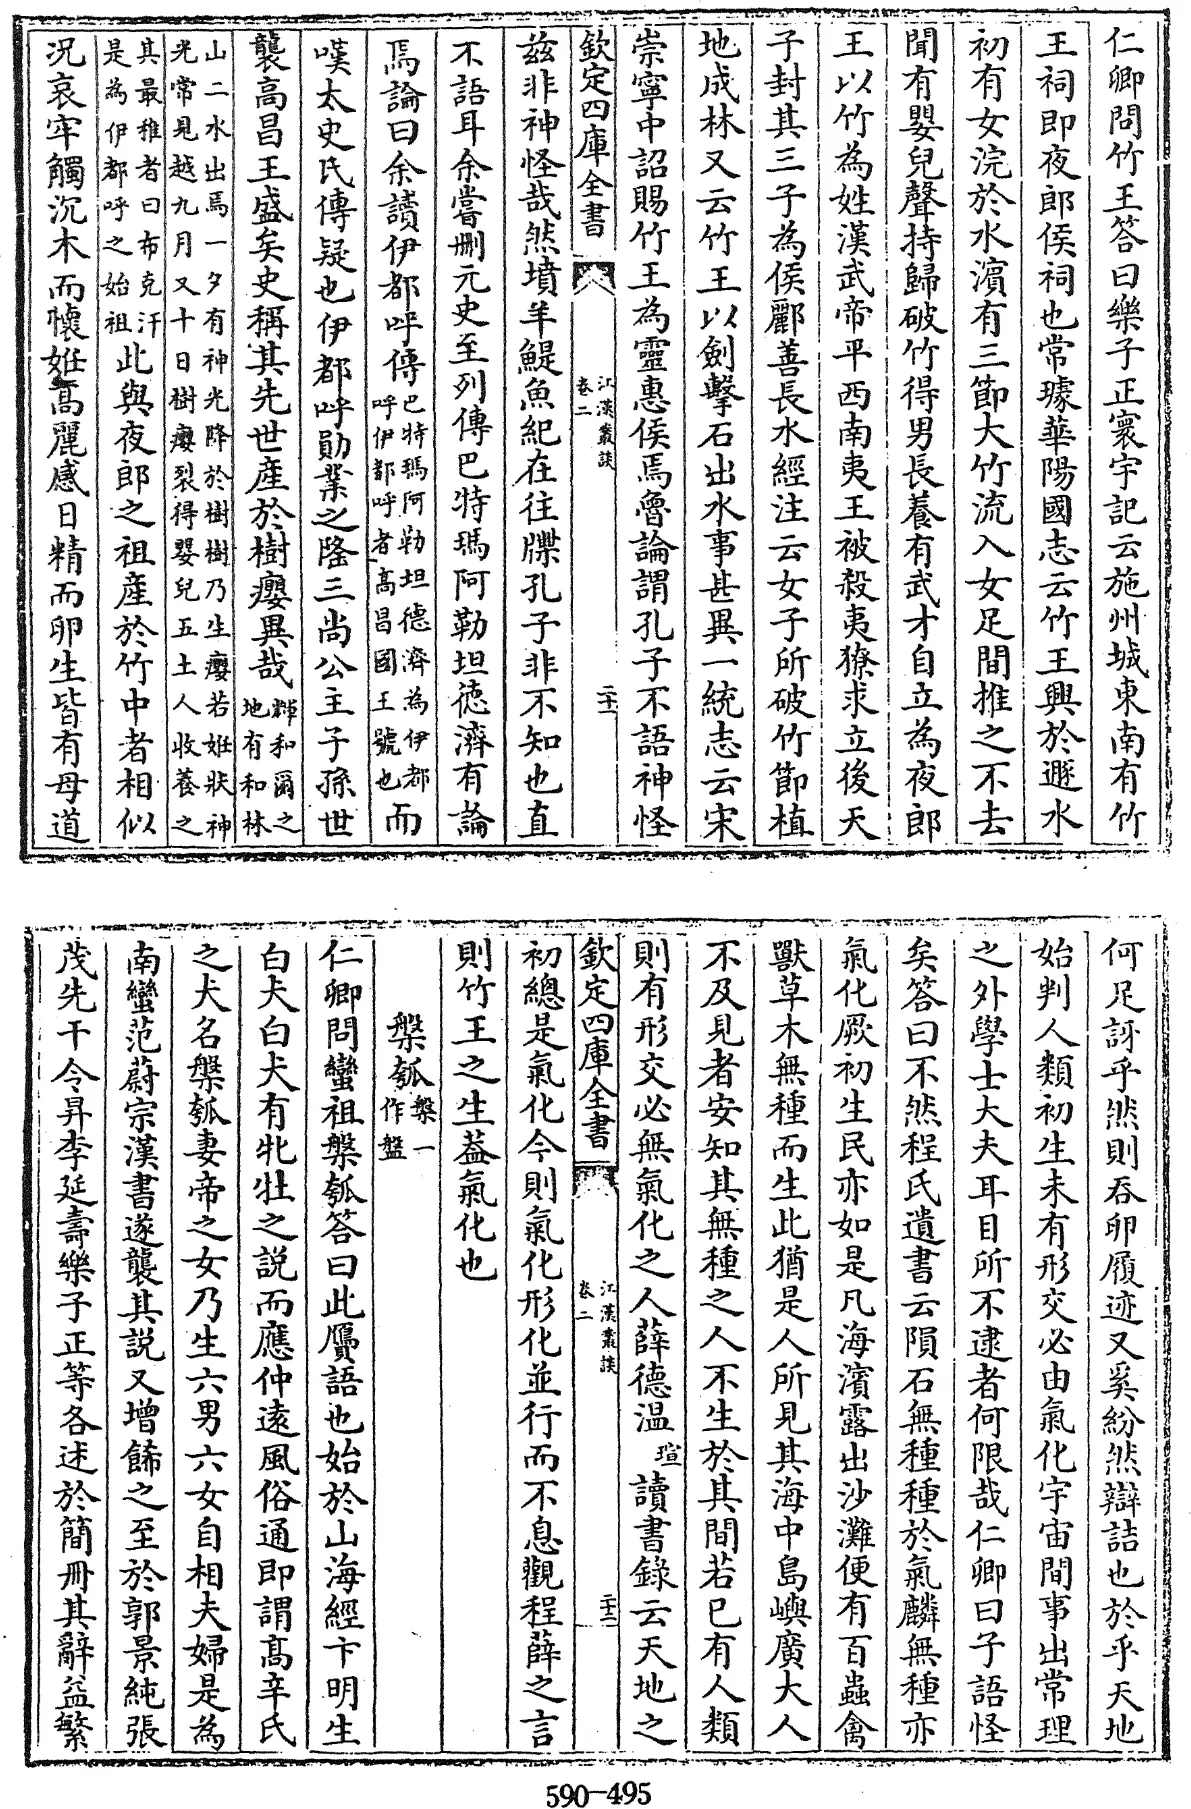 仁卿問竹王答曰樂子正寰宇記云施州城東南有竹
王祠即夜郎侯祠也常璩華陽國志云竹王興於遯水
初有女浣於水濱有三節大竹流入女足間推之不去
聞有嬰兒聲持歸破竹得男長養有武才自立為夜郎
王以竹為姓漢武帝平西南夷王被殺夷獠求立後天
子封其三子為侯酈善長水經注云女子所破竹節植
地成林又云竹王以劍擊石出水事甚異一統志云宋
崇寧中詔賜竹王為靈惠侯焉魯論謂孔子不語神怪
欽定四庫全書
江漢叢談
卷二
二十一
兹非神怪哉然墳羊鯷魚紀在往牒孔子非不知也直
不語耳余嘗刪元史至列傳巴特瑪阿勒坦徳濟有論
焉論曰余讀伊都呼傳巴特瑪阿勒坦德濟為伊都呼伊都呼者高昌國王號也而
嘆太史氏傳疑也伊都呼勛業之隆三尚公主子孫世
襲高昌王盛矣史稱其先世産於樹癭異哉輝和爾之地有和林
山二水出焉一夕有神光降於樹樹乃生癭若妊狀神光常見越九月又十日樹癭裂得嬰兒五土人收養之
其最稚者曰布克汗是為伊都呼之始祖此與夜郎之祖産於竹中者相似
況哀牢觸沉木而懷妊高麗感日精而卵生皆有母道
何足訝乎然則吞卵履迹又奚紛然辯詰也於乎天地
始判人類初生未有形交必由氣化宇宙間事出常理
之外學士大夫耳目所不逮者何限哉仁卿曰子語怪
矣答曰不然程氏遺書云隕石無種種於氣麟無種亦
氣化厥初生民亦如是凡海濱露出沙灘便有百蟲禽
獸草木無種而生此猶是人所見其海中島嶼廣大人
不及見者安知其無種之人不生於其間若已有人類
則有形交必無氣化之人薛德温瑄讀書錄云天地之
欽定四庫全書
江漢叢談
卷二
二十二
初總是氣化今則氣化形化並行而不息觀程薛之言
則竹王之生葢氣化也
槃瓠槃一作盤
仁卿問蠻祖槃瓠答曰此贗語也始於山海經卞明生
白犬白犬有牝牡之説而應仲遠風俗通即謂高辛氏
之犬名槃瓠妻帝之女乃生六男六女自相夫婦是為
南蠻范蔚宗漢書遂襲其説又增餙之至於郭景純張
茂先干令昇李延壽樂子正等各述於簡冊其辭益繁
590-495